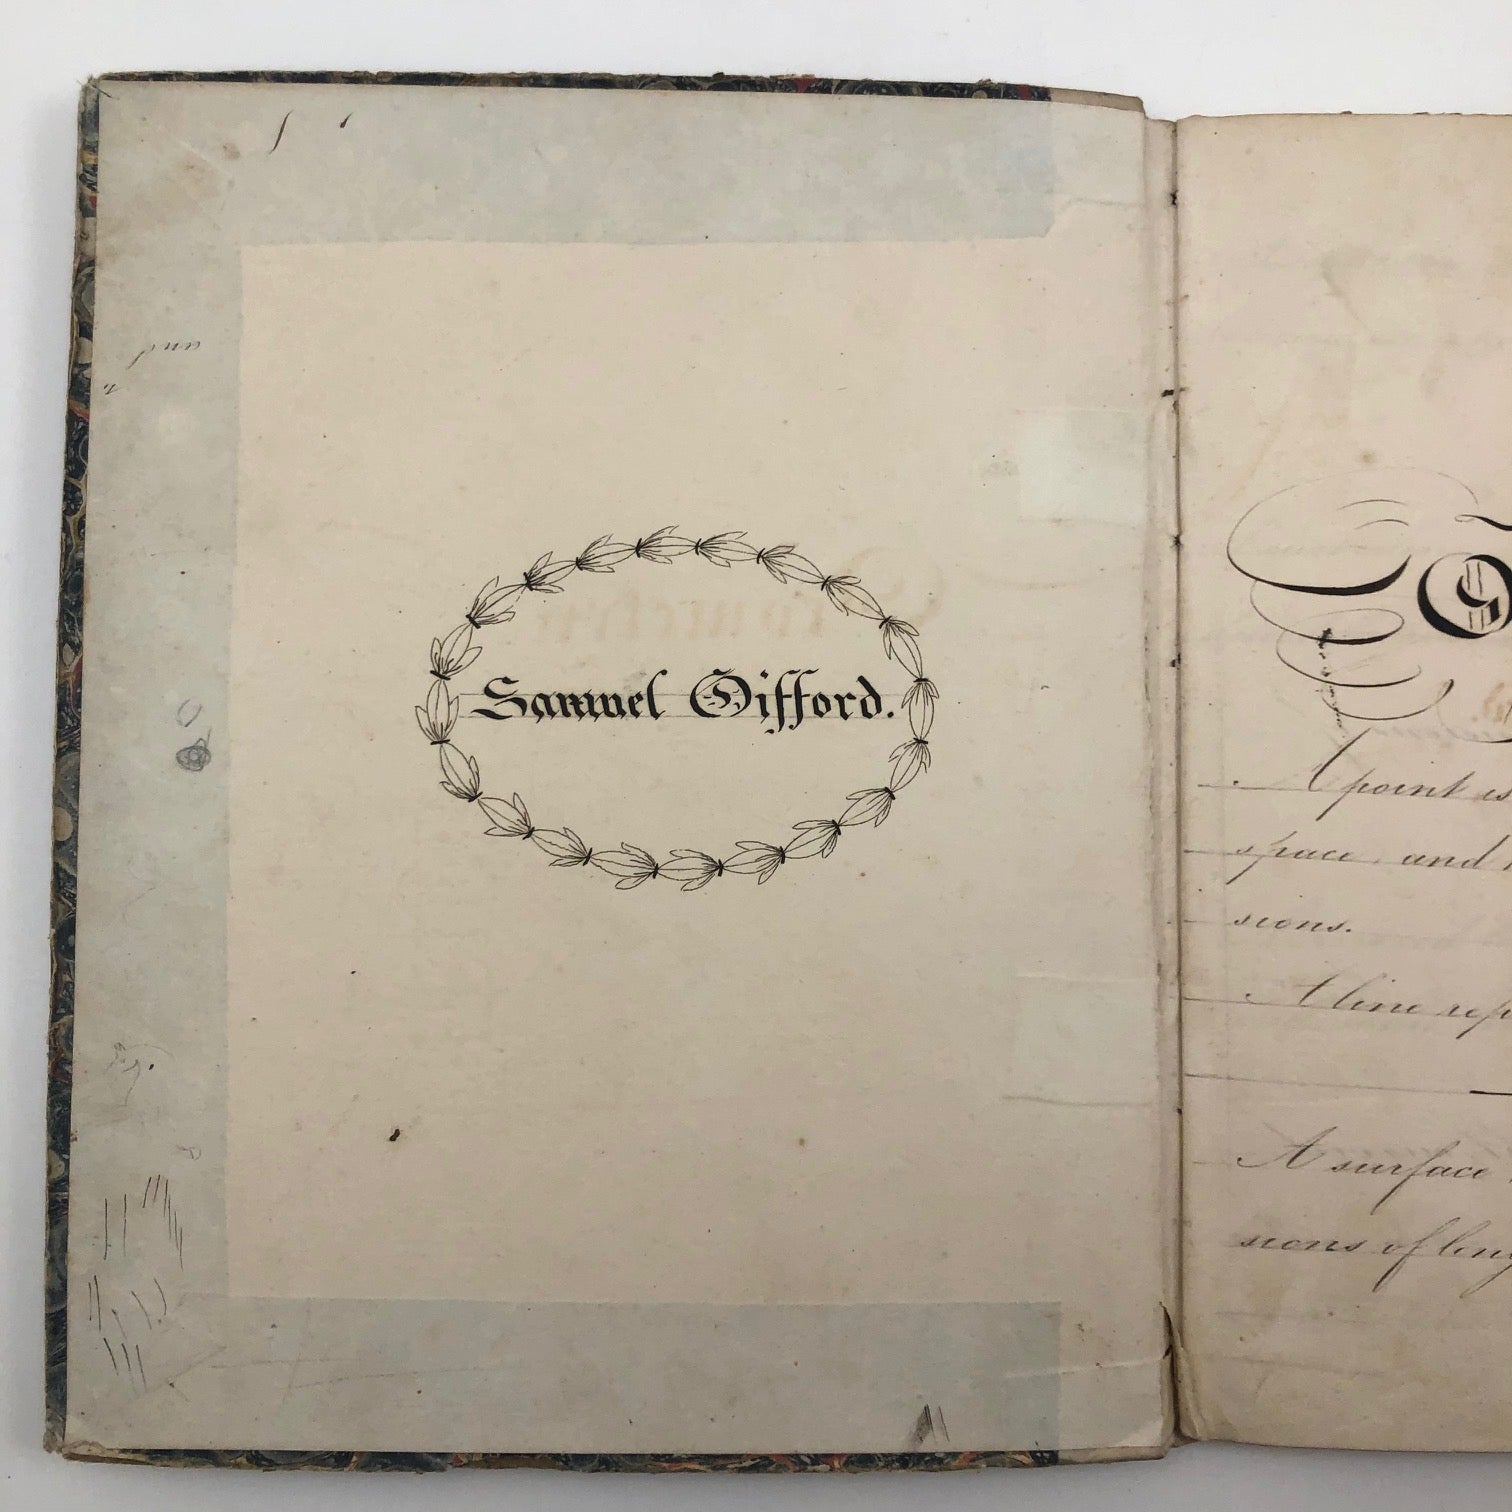 and
Samuel Gifford.
G
A point is
space, and
sions.
A line rep
A surface
sions of leng